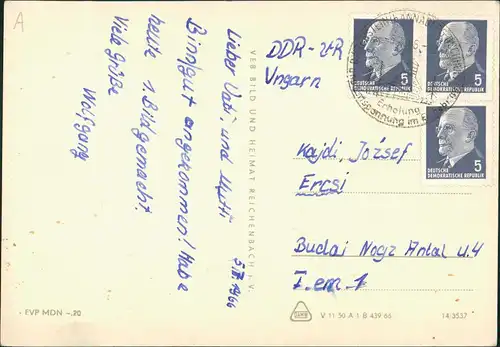 A
5.II.1966
Lieber Vati, und Mutti
Bin gut angekommen! Habe
heute 1. Bild gemacht.
Viele Grüße
Wolfgang
VEB BILD UND HEIMAT REICHENBACH I. V.
DDR-VR
Ungarn
Erholung
Entspannung im
5
DEUTSCHE
DEMOKRATISCHE REPUBLIK
5
DEUTSCHE
DEMOKRATISCHE REPUBLIK
5
DEUTSCHE
DEMOKRATISCHE REPUBLIK
Kajdi, József
Ercsi
Budai Nagz Antal u.4
I. em. 1
EVP MDN -.20
V 11 50 A 1 B 439 66
14/3537